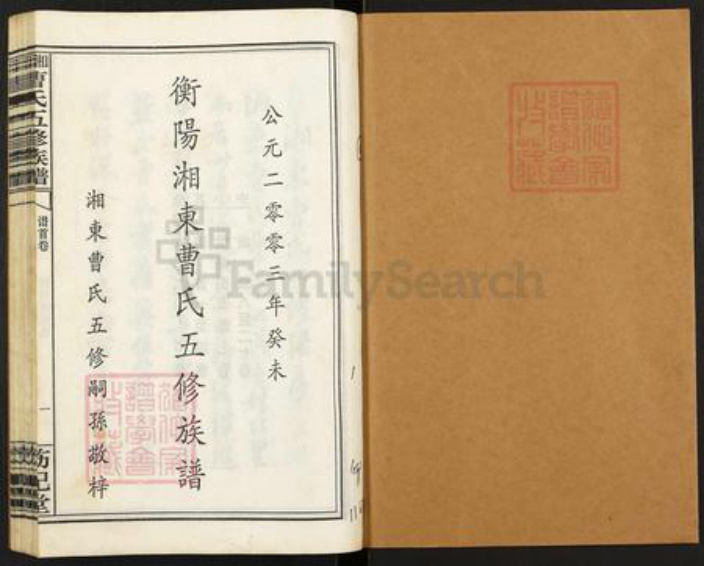 公元二零零三年癸未
衡陽湘東曹氏五修族譜
湘東曹氏五修嗣孫敬梓
曹氏五修族譜
譜首卷
一
FamilySearch